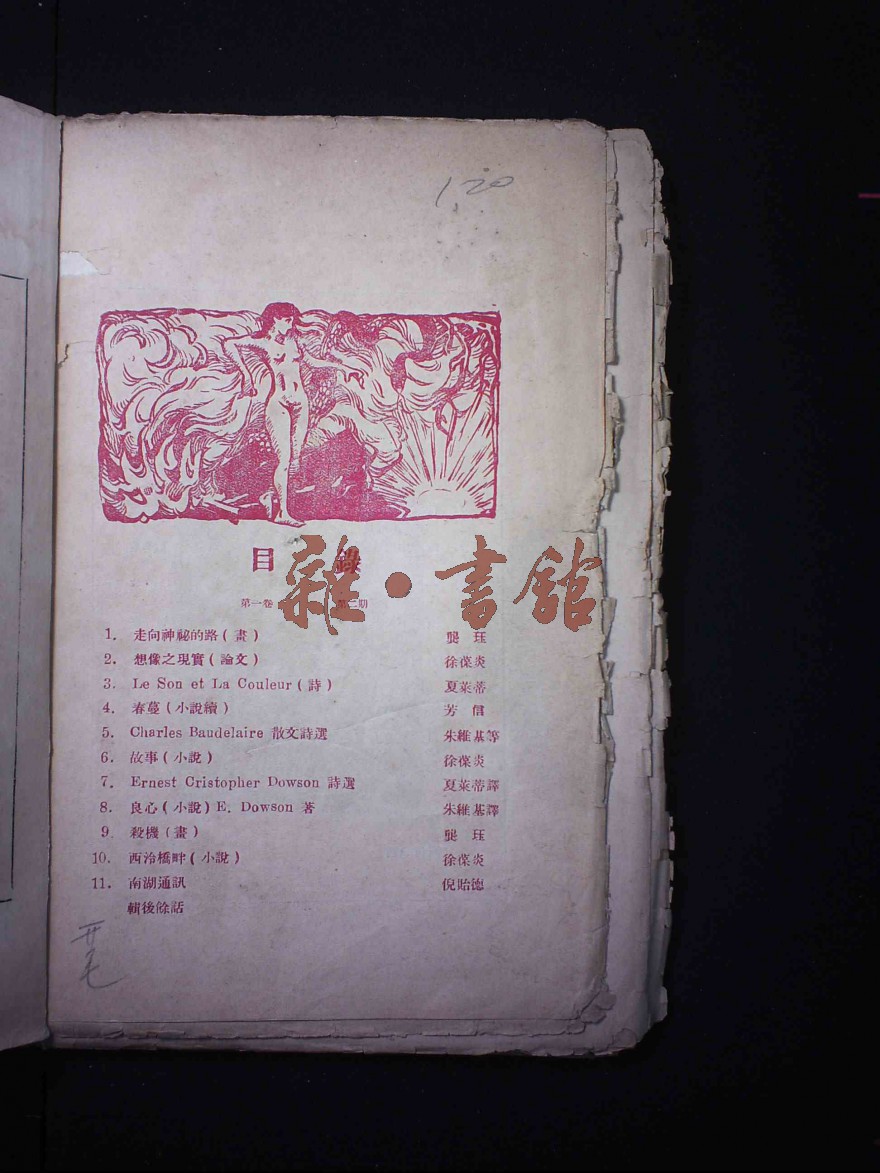 1.20
目 錄
雜·書館
第一卷 第二期
1. 走向神祕的路(畫) 龔 珏
2. 想像之現實(論文) 徐葆炎
3. Le Son et La Couleur(詩) 夏萊蒂
4. 春蔓(小說續) 芳 信
5. Charles Baudelaire 散文詩選 朱維基等
6. 故事(小說) 徐葆炎
7. Ernest Cristopher Dowson 詩選 夏萊蒂譯
8. 良心(小說)E. Dowson 著 朱維基譯
9. 殺機(畫) 龔 珏
10. 西泠橋畔(小說) 徐葆炎
11. 南湖通訊 倪貽德
輯後餘話